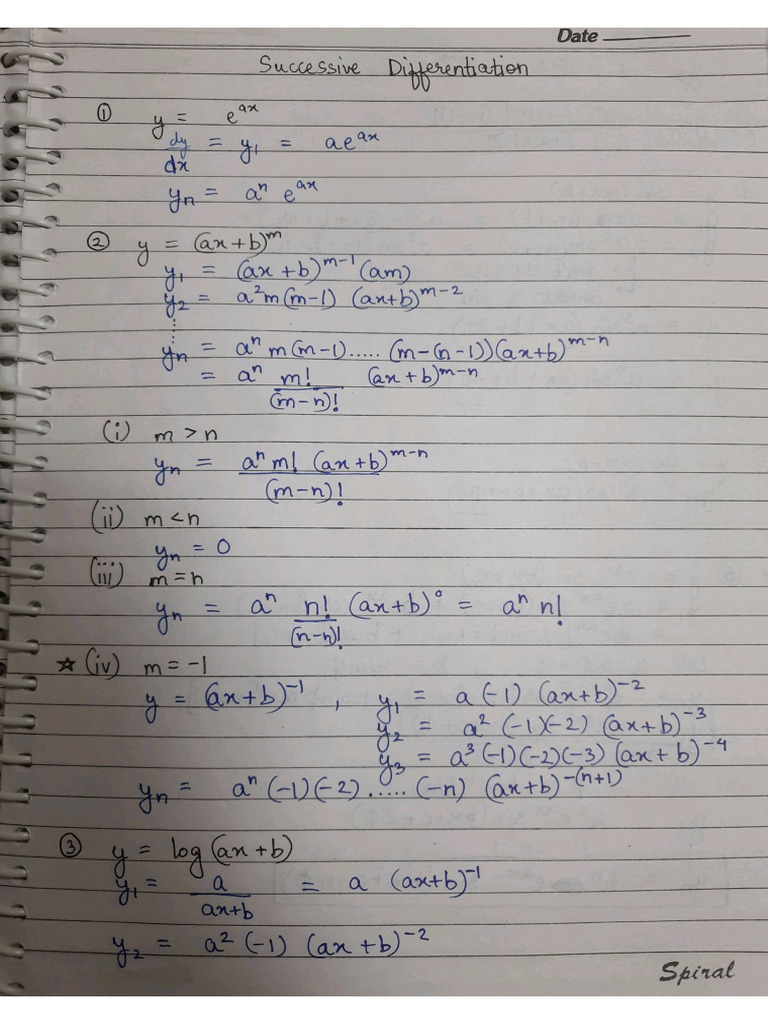 Date
Successive Differentiation
① y = e^{ax}
dy/dx = y₁ = ae^{ax}
yₙ = aⁿ e^{ax}
② y = (ax+b)^m
y₁ = (ax+b)^{m-1} (am)
y₂ = a²m(m-1) (ax+b)^{m-2}
⋮
yₙ = aⁿ m(m-1)..... (m-(n-1))(ax+b)^{m-n}
= aⁿ m!/(m-n)! (ax+b)^{m-n}
(i) m > n
yₙ = aⁿ m! (ax+b)^{m-n}/(m-n)!
(ii) m < n
yₙ = 0
(iii) m = n
yₙ = aⁿ n!/(n-n)! (ax+b)⁰ = aⁿ n!
☆ (iv) m = -1
y = (ax+b)^{-1} , y₁ = a (-1) (ax+b)^{-2}
y₂ = a² (-1)(-2) (ax+b)^{-3}
y₃ = a³ (-1)(-2)(-3) (ax+b)^{-4}
yₙ = aⁿ (-1)(-2)..... (-n) (ax+b)^{-(n+1)}
③ y = log(ax+b)
y₁ = a/(ax+b) = a (ax+b)^{-1}
y₂ = a² (-1) (ax+b)^{-2}
Spiral